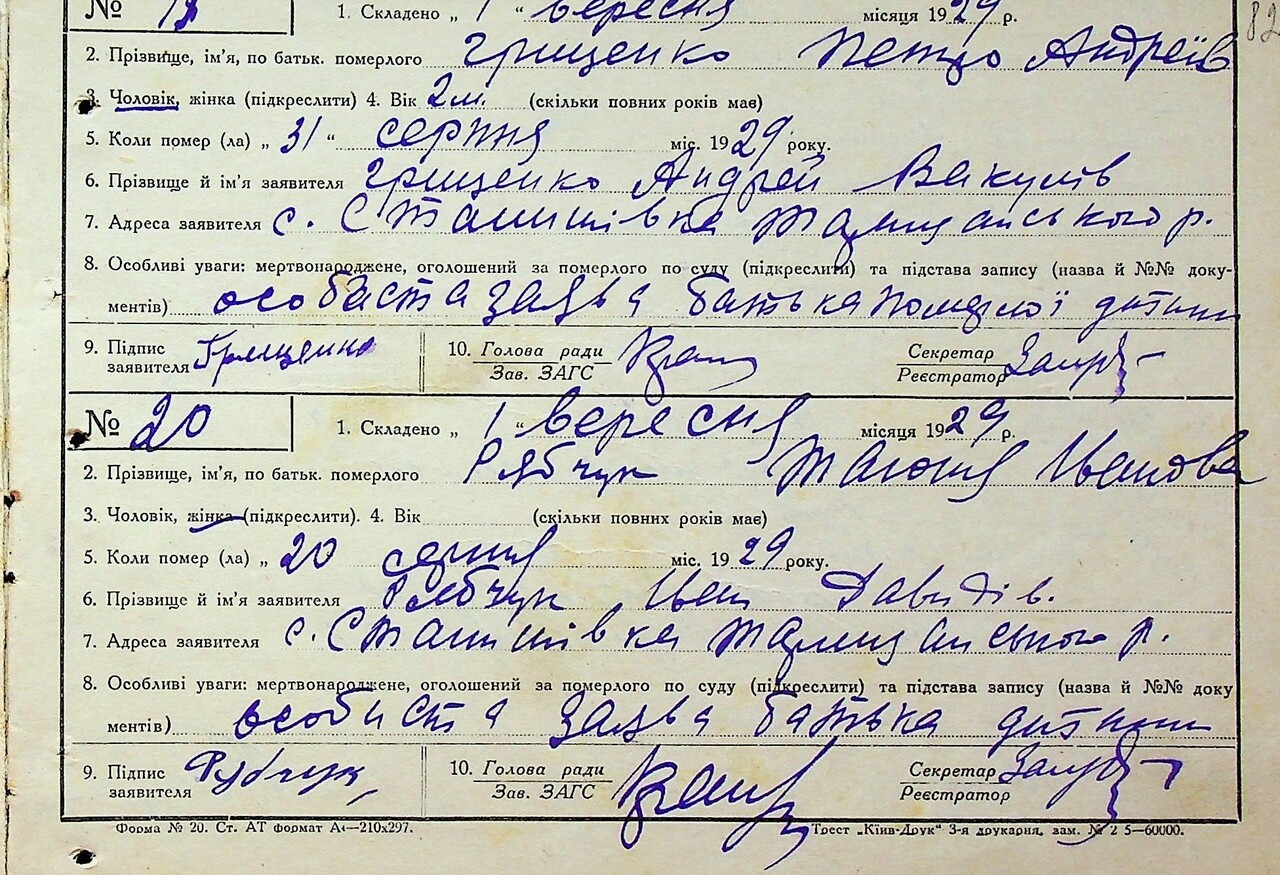 82
№ 1. Складено „ 1 “ вересня місяця 1929 р.
2. Прізвище, ім’я, по батьк. померлого Грищенко Петро Андреїв
3. Чоловік, жінка (підкреслити) 4. Вік 2 м. (скільки повних років має)
5. Коли помер (ла) „ 31 “ серпня міс. 1929 року.
6. Прізвище й ім’я заявителя Грищенко Андрей Вакулів
7. Адреса заявителя с. Станишівка Таращанського р.
8. Особливі уваги: мертвонароджене, оголошений за померлого по суду (підкреслити) та підстава запису (назва й №№ доку-
ментів) особаста заява батька помéрлої дитини
9. Підпис заявителя Грищенко 10. Голова ради Зав. ЗАГС Секретар Реєстратор
№ 20 1. Складено „ 1 “ вересня місяця 1929 р.
2. Прізвище, ім’я, по батьк. померлого Рябчук Іванова
3. Чоловік, жінка (підкреслити). 4. Вік (скільки повних років має)
5. Коли помер (ла) „ 20 серпня міс. 1929 року.
6. Прізвище й ім’я заявителя Рябчук Іван Давидів.
7. Адреса заявителя с. Станишівка Таращанського р.
8. Особливі уваги: мертвонароджене, оголошений за померлого по суду (підкреслити) та підстава запису (назва й №№ доку
ментів) особиста заява батька дитини
9. Підпис заявителя Рябчук 10. Голова ради Зав. ЗАГС Секретар Реєстратор
Форма № 20. Ст. АТ формат А4—210х297. Трест „Київ-Друк“ 3-я друкарня, зам. № 2 5—60000.